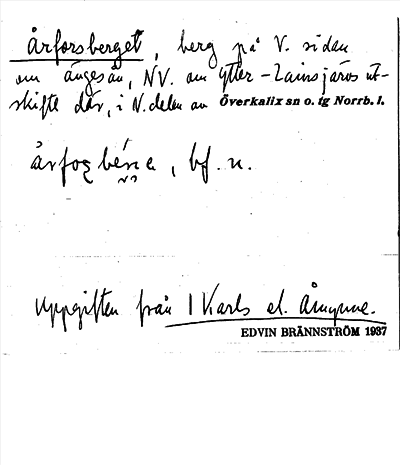 Årforsberget, berg på V. sidan
om ängesån, NV. om Ytter-Lainsjärvs ut-
skifte där, i N. delen av Överkalix sn o. tg Norrb. l.
bf. n.
Uppgiften från I Karls el. Åmynne.
EDVIN BRÄNNSTRÖM 1937